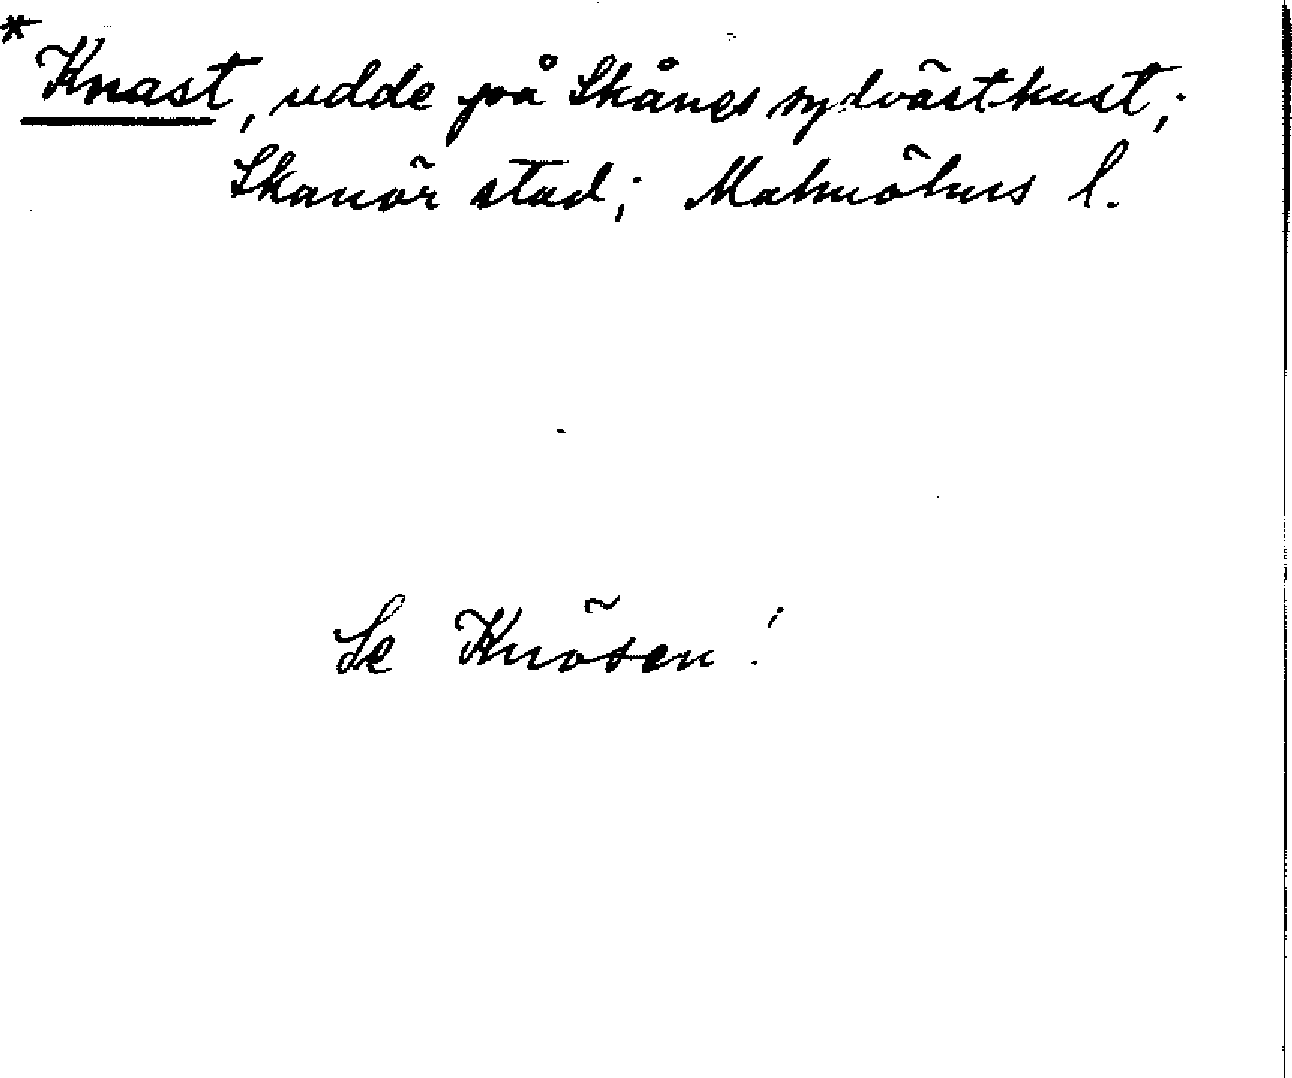 * Knast, udde på Skånes sydvästkust;
Skanör stad; Malmöhus l.
Se Knösen!